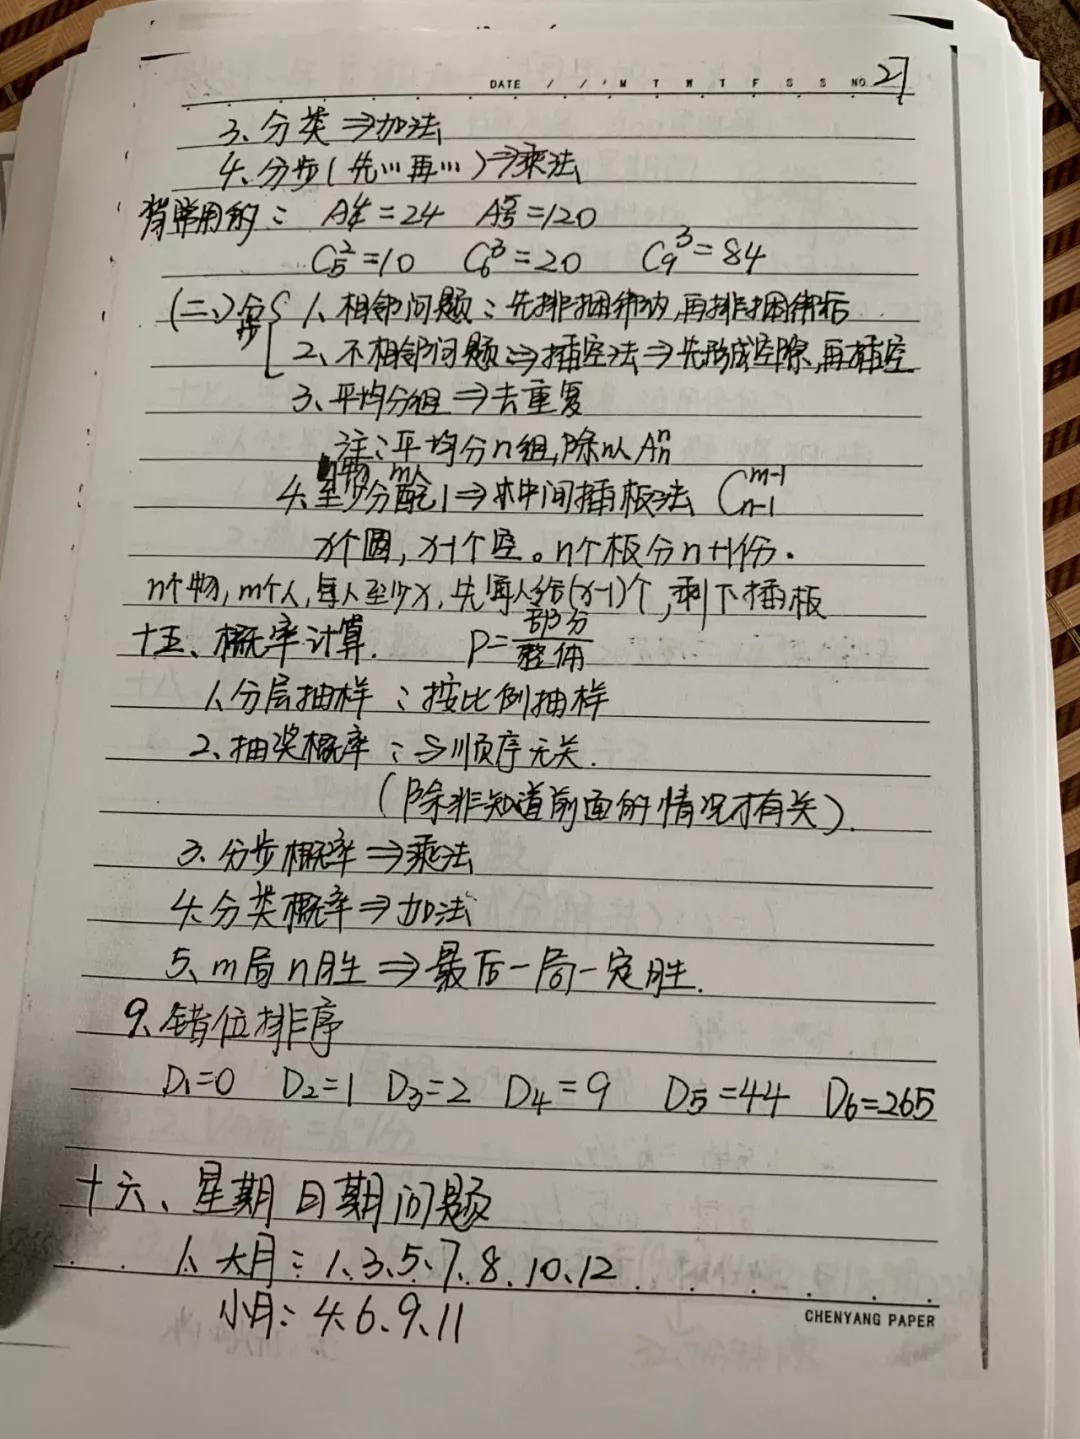 DATE / / M T W T F S S NO. 27
3、分类⇒加法
4、分步(先…再…)⇒乘法
背常用的: A₄⁴=24 A₅⁵=120
C₅²=10 C₆³=20 C₉³=84
(二)分步 1、相邻问题:先排捆绑内,再排捆绑后
2、不相邻问题⇒插空法⇒先形成空隙,再插空
3、平均分组⇒去重复
注:平均分n组,除以Aₙⁿ
n物 m人
4、至少分配1⇒求中间插板法 Cₙ₋₁ᵐ⁻¹
x个圆,x-1个空。n个板分n+1份.
n个物,m个人,每人至少x,先每人给(x-1)个,剩下插板
十五、概率计算. P=部分/整体
1、分层抽样:按比例抽样
2、抽奖概率:与顺序无关.
(除非知道前面的情况才有关).
3、分步概率⇒乘法
4、分类概率⇒加法
5、m局n胜⇒最后一局一定胜.
9、错位排序
D₁=0 D₂=1 D₃=2 D₄=9 D₅=44 D₆=265
十六、星期日期问题
1、大月:1、3、5、7、8、10、12
小月:4、6、9、11
CHENYANG PAPER